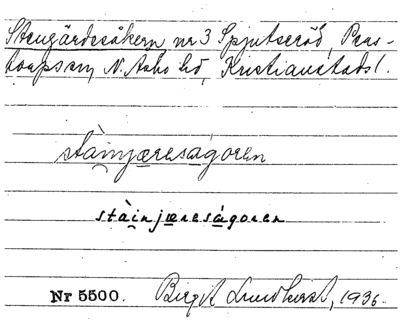 Stengärdesåkern nr 3 Spjutseröd, Pers-
torps sn, N. Åsbo hd, Kristianstads l.
stàinjæreságoren
stàinjæreságoren
Nr 5500. Birgit Lundkvist, 1936.